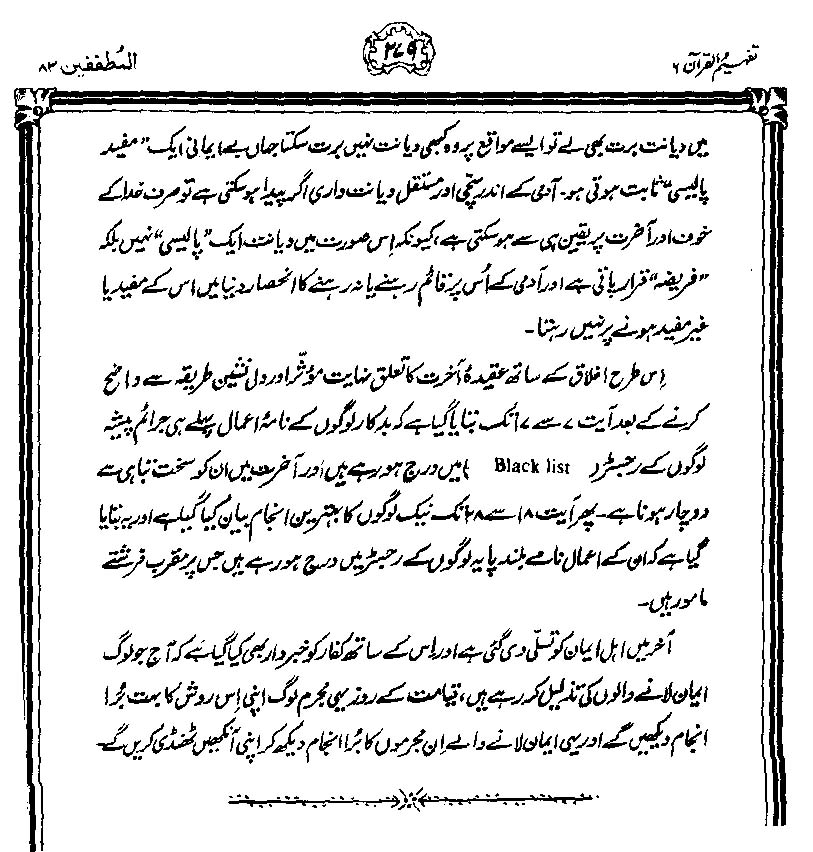 تفہیم القرآن ۶
۲۷۹
المُطففین ۸۳
میں دیانت برت بھی لے تو ایسے مواقع پر وہ کبھی دیانت نہیں برت سکتا جہاں بے ایمانی ایک ”مفید
پالیسی“ ثابت ہوتی ہو۔ آدمی کے اندر سچی اور مستقل دیانت داری اگر پیدا ہو سکتی ہے تو صرف خدا کے
خوف اور آخرت پر یقین ہی سے ہو سکتی ہے، کیونکہ اِس صورت میں دیانت ایک ”پالیسی“ نہیں بلکہ
”فریضہ“ قرار پاتی ہے اور آدمی کے اُس پر قائم رہنے یا نہ رہنے کا انحصار دنیا میں اس کے مفید یا
غیر مفید ہونے پر نہیں رہتا۔
اِس طرح اخلاق کے ساتھ عقیدۂ آخرت کا تعلق نہایت مؤثّر اور دل نشین طریقہ سے واضح
کرنے کے بعد آیت ۷ سے ۱۷ تک بتایا گیا ہے کہ بدکار لوگوں کے نامۂ اعمال پہلے ہی جرائم پیشہ
لوگوں کے رجسٹر ( Black list ) میں درج ہو رہے ہیں اور آخرت میں ان کو سخت تباہی سے
دوچار ہونا ہے۔ پھر آیت ۱۸ سے ۲۸ تک نیک لوگوں کا بہترین انجام بیان کیا گیا ہے اور یہ بتایا
گیا ہے کہ ان کے اعمال نامے بلند پایہ لوگوں کے رجسٹر میں درج ہو رہے ہیں جس پر مقرب فرشتے
مامور ہیں۔
آخر میں اہل ایمان کو تسلّی دی گئی ہے اور اِس کے ساتھ کفار کو خبردار بھی کیا گیا ہے کہ آج جو لوگ
ایمان لانے والوں کی تذلیل کر رہے ہیں، قیامت کے روز یہی مجرم لوگ اپنی اِس روش کا بہت بُرا
انجام دیکھیں گے اور یہی ایمان لانے والے اِن مجرموں کا بُرا انجام دیکھ کر اپنی آنکھیں ٹھنڈی کریں گے۔